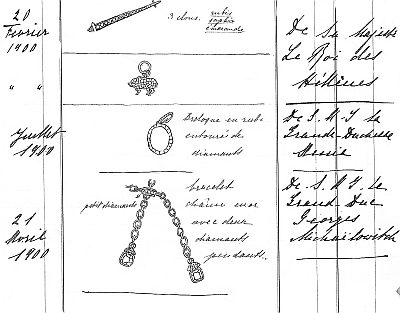 20
Février
1900
3 clous. rubis
saphir
émeraude
De Sa Majesté
Le Roi des
Hélènes
" "
Juillet
1900
entouré de
diamants
De S. M. I. la
Grande-Duchesse
21
Avril
1900
petit diamants
bracelet
chaîne
avec deux
diamants
pendants.
De S. A. I. le
Grand-Duc
Georges
Michaïlowitch